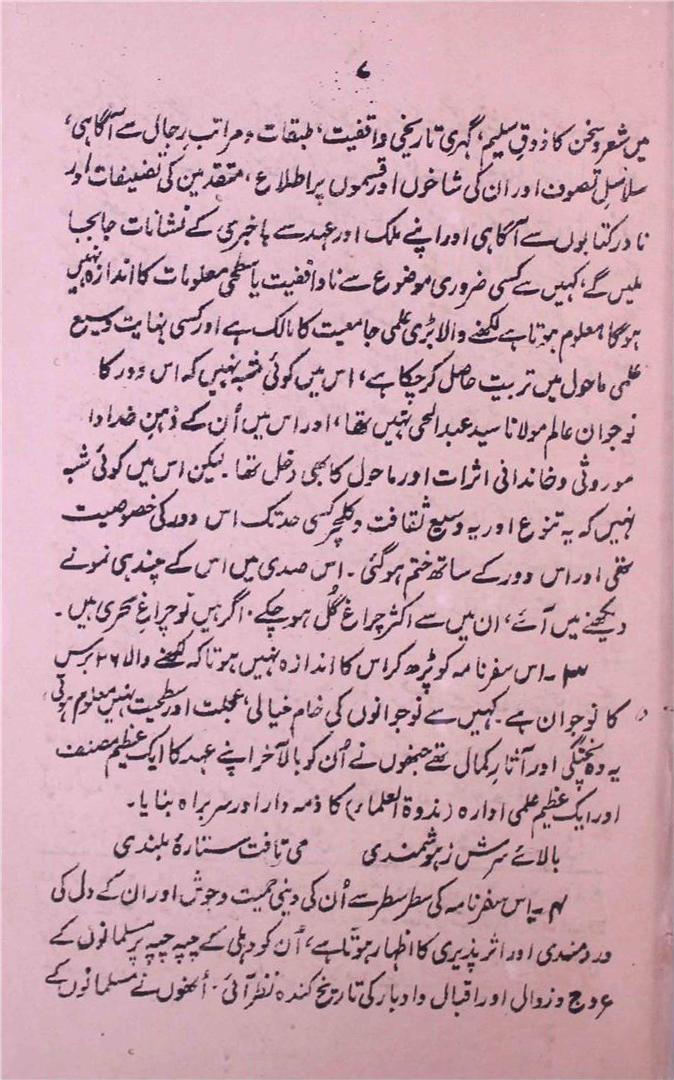 ۷
میں شعر و سخن کا ذوقِ سلیم، گہری تاریخی واقفیت، طبقات و مراتب رجال سے آگاہی،
سلاسلِ تصوف اور ان کی شاخوں اور قسموں پر اطلاع، متقدمین کی تصنیفات اور
نادر کتابوں سے آگاہی اور اپنے ملک اور عہد سے باخبری کے نشانات جابجا
ملیں گے، کہیں سے کسی ضروری موضوع سے ناواقفیت یا سطحی معلومات کا اندازہ نہیں
ہوگا معلوم ہوتا ہے لکھنے والا بڑی علمی جامعیت کا مالک ہے اور کسی نہایت وسیع
علمی ماحول میں تربیت حاصل کر چکا ہے، اس میں کوئی شبہ نہیں کہ اس دور کا
نوجوان عالم مولانا سید عبدالحی نہیں تھا، اور اس میں اُن کے ذہنِ خداداد
موروثی و خاندانی اثرات اور ماحول کا بھی دخل تھا۔ لیکن اس میں کوئی شبہ
نہیں کہ یہ تنوع اور یہ وسیع ثقافت و کلچر کسی حد تک اس دور کی خصوصیت
تھی اور اس دور کے ساتھ ختم ہوگئی۔ اس صدی میں اس کے چند ہی نمونے
دیکھنے میں آئے، ان میں سے اکثر چراغ گُل ہوچکے۔ اگر ہیں تو چراغِ سحری ہیں۔
۳۔ اس سفرنامہ کو پڑھ کر اس کا اندازہ نہیں ہوتا کہ لکھنے والا ۲۶ برس
کا نوجوان ہے۔ کہیں سے نوجوانوں کی خام خیالی، عجلت اور سطحیت نہیں معلوم ہوتی،
یہ وہ پختگی اور آثارِ کمال تھے جنھوں نے اُن کو بالآخر اپنے عہد کا ایک عظیم مصنف
اور ایک عظیم علمی ادارہ (ندوۃ العلماء) کا ذمہ دار اور سربراہ بنایا۔
بالائے سرش ز ہوشمندی می تافت ستارۂ بلندی
۴۔ اس سفرنامہ کی سطر سطر سے اُن کی دینی حمیت و جوش اور ان کے دل کی
دردمندی اور اثر پذیری کا اظہار ہوتا ہے، اُن کو دہلی کے چپہ چپہ پر مسلمانوں کے
عروج و زوال اور اقبال و ادبار کی تاریخ کندہ نظر آئی۔ اُنھوں نے مسلمانوں کے